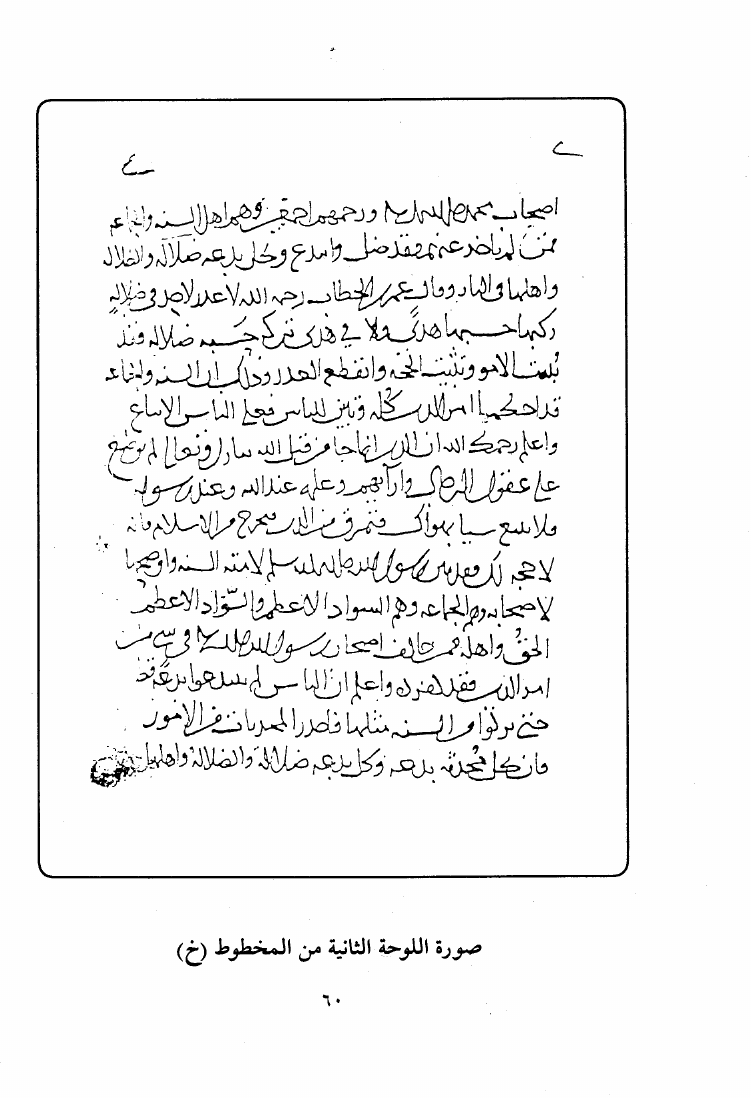 ٢
٤
اصحاب محمد صلى الله عليه ورحمهم اجمعين وهم اهل السنه والجماعه
فمن لم ياخذ عنهم فقد ضل وابتدع وكل بدعه ضلاله والضلاله
واهلها في النار وقال عمر بن الخطاب رحمه الله لا عذر لاحد في ضلاله
ركبها حسبها هدى ولا في هدى تركه حسبه ضلاله فقد
بُينت الامور وثبتت الحجه وانقطع العذر وذلك ان السنه والجماعه
قد احكما امر الدين كله وتبين للناس فعلى الناس الاتباع
واعلم رحمك الله ان الدين انما جا من قبل الله تبارك وتعالى لم يوضع
على عقول الرجال وارآيهم وعلمه عند الله وعند رسوله
فلا تتبع شيا بهواك فتمرق من الدين فتخرج من الاسلام فانه
لا حجه لك فقد بين رسول الله صلى الله عليه وسلم لامته السنه واوضحها
لاصحابه وهم الجماعه وهم السواد الاعظم والسَّواد الاعظم
الحقُّ واهله فمن خالف اصحاب رسول الله صلى الله عليه في شي من
امر الدين فقد كفر واعلم انَّ الناس لم يبتدعوا بدعةً قط
حتى تركوا من السنه مثلها فاحذر المحدثات من الامور
فان كل مُحدثه بدعه وكل بدعه ضلالة والضلالة واهلها
صورة اللوحة الثانية من المخطوط (خ)
٦٠